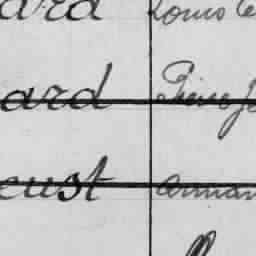 ard Louis Ce
ard Pierre J
cust Arman